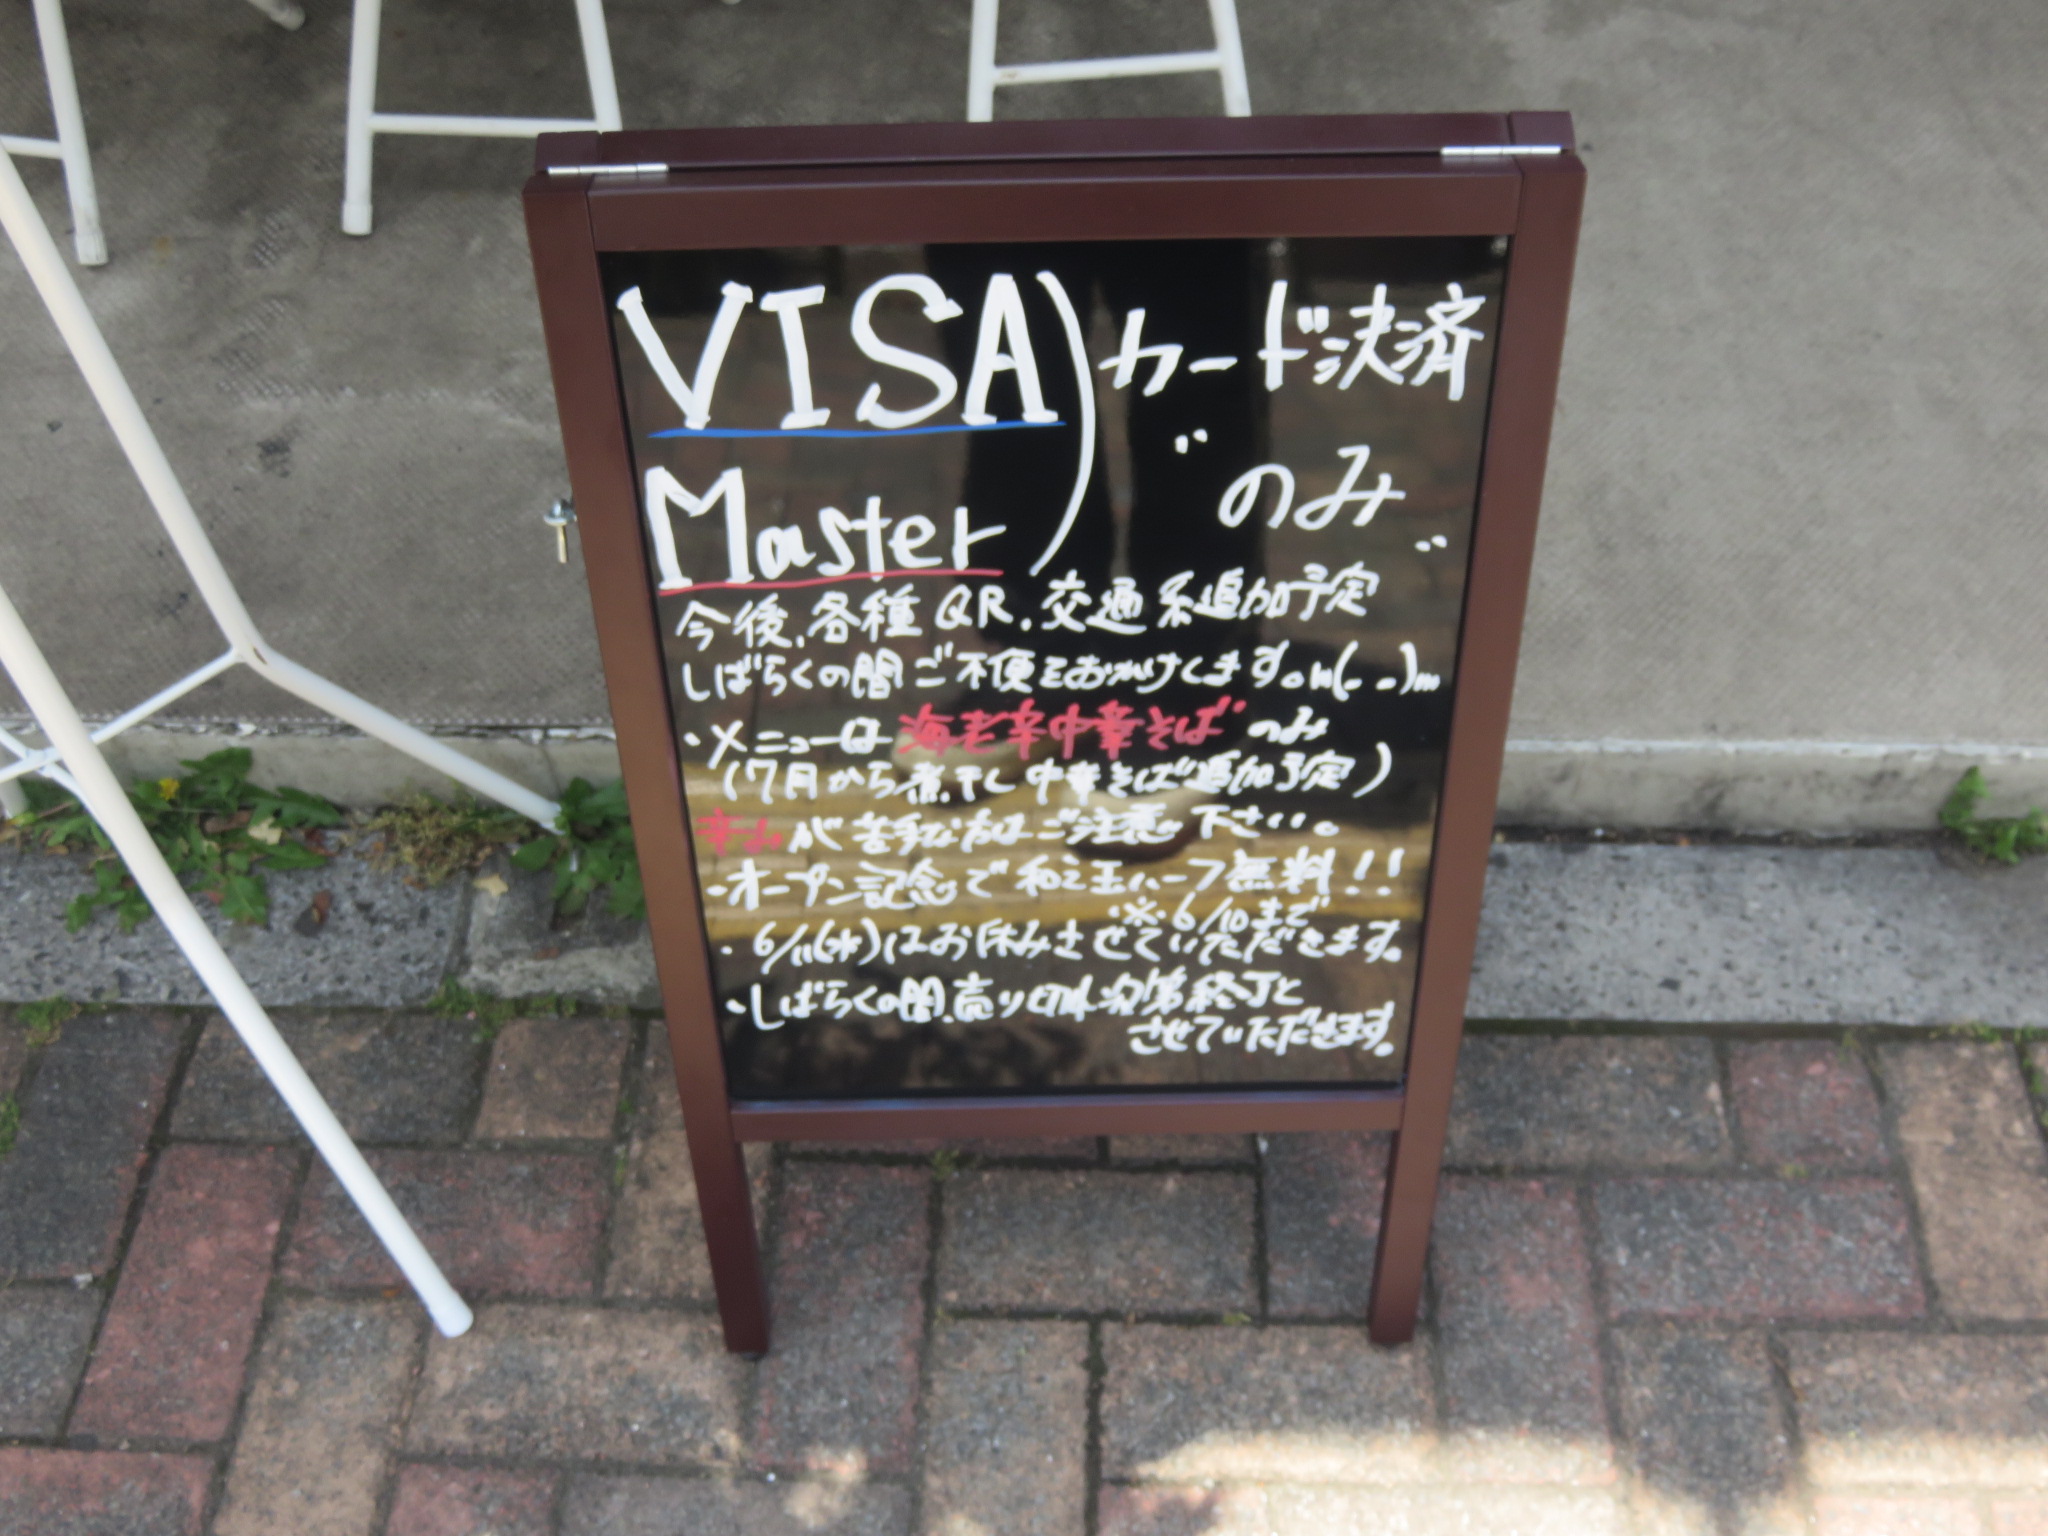 VISA
Master
)カード決済
"のみ"
今後、各種QR、交通系追加予定
しばらくの間ご不便をおかけします。m(. .)m
・メニューは海老辛中華そば"のみ
(7月から煮干し中華そば追加予定)
辛みが苦手な方はご注意下さい。
・オープン記念で和え玉ハーフ無料!!
※6/10まで
・6/11(水)はお休みさせていただきます。
・しばらくの間、売り切れ次第終了と
させていただきます。